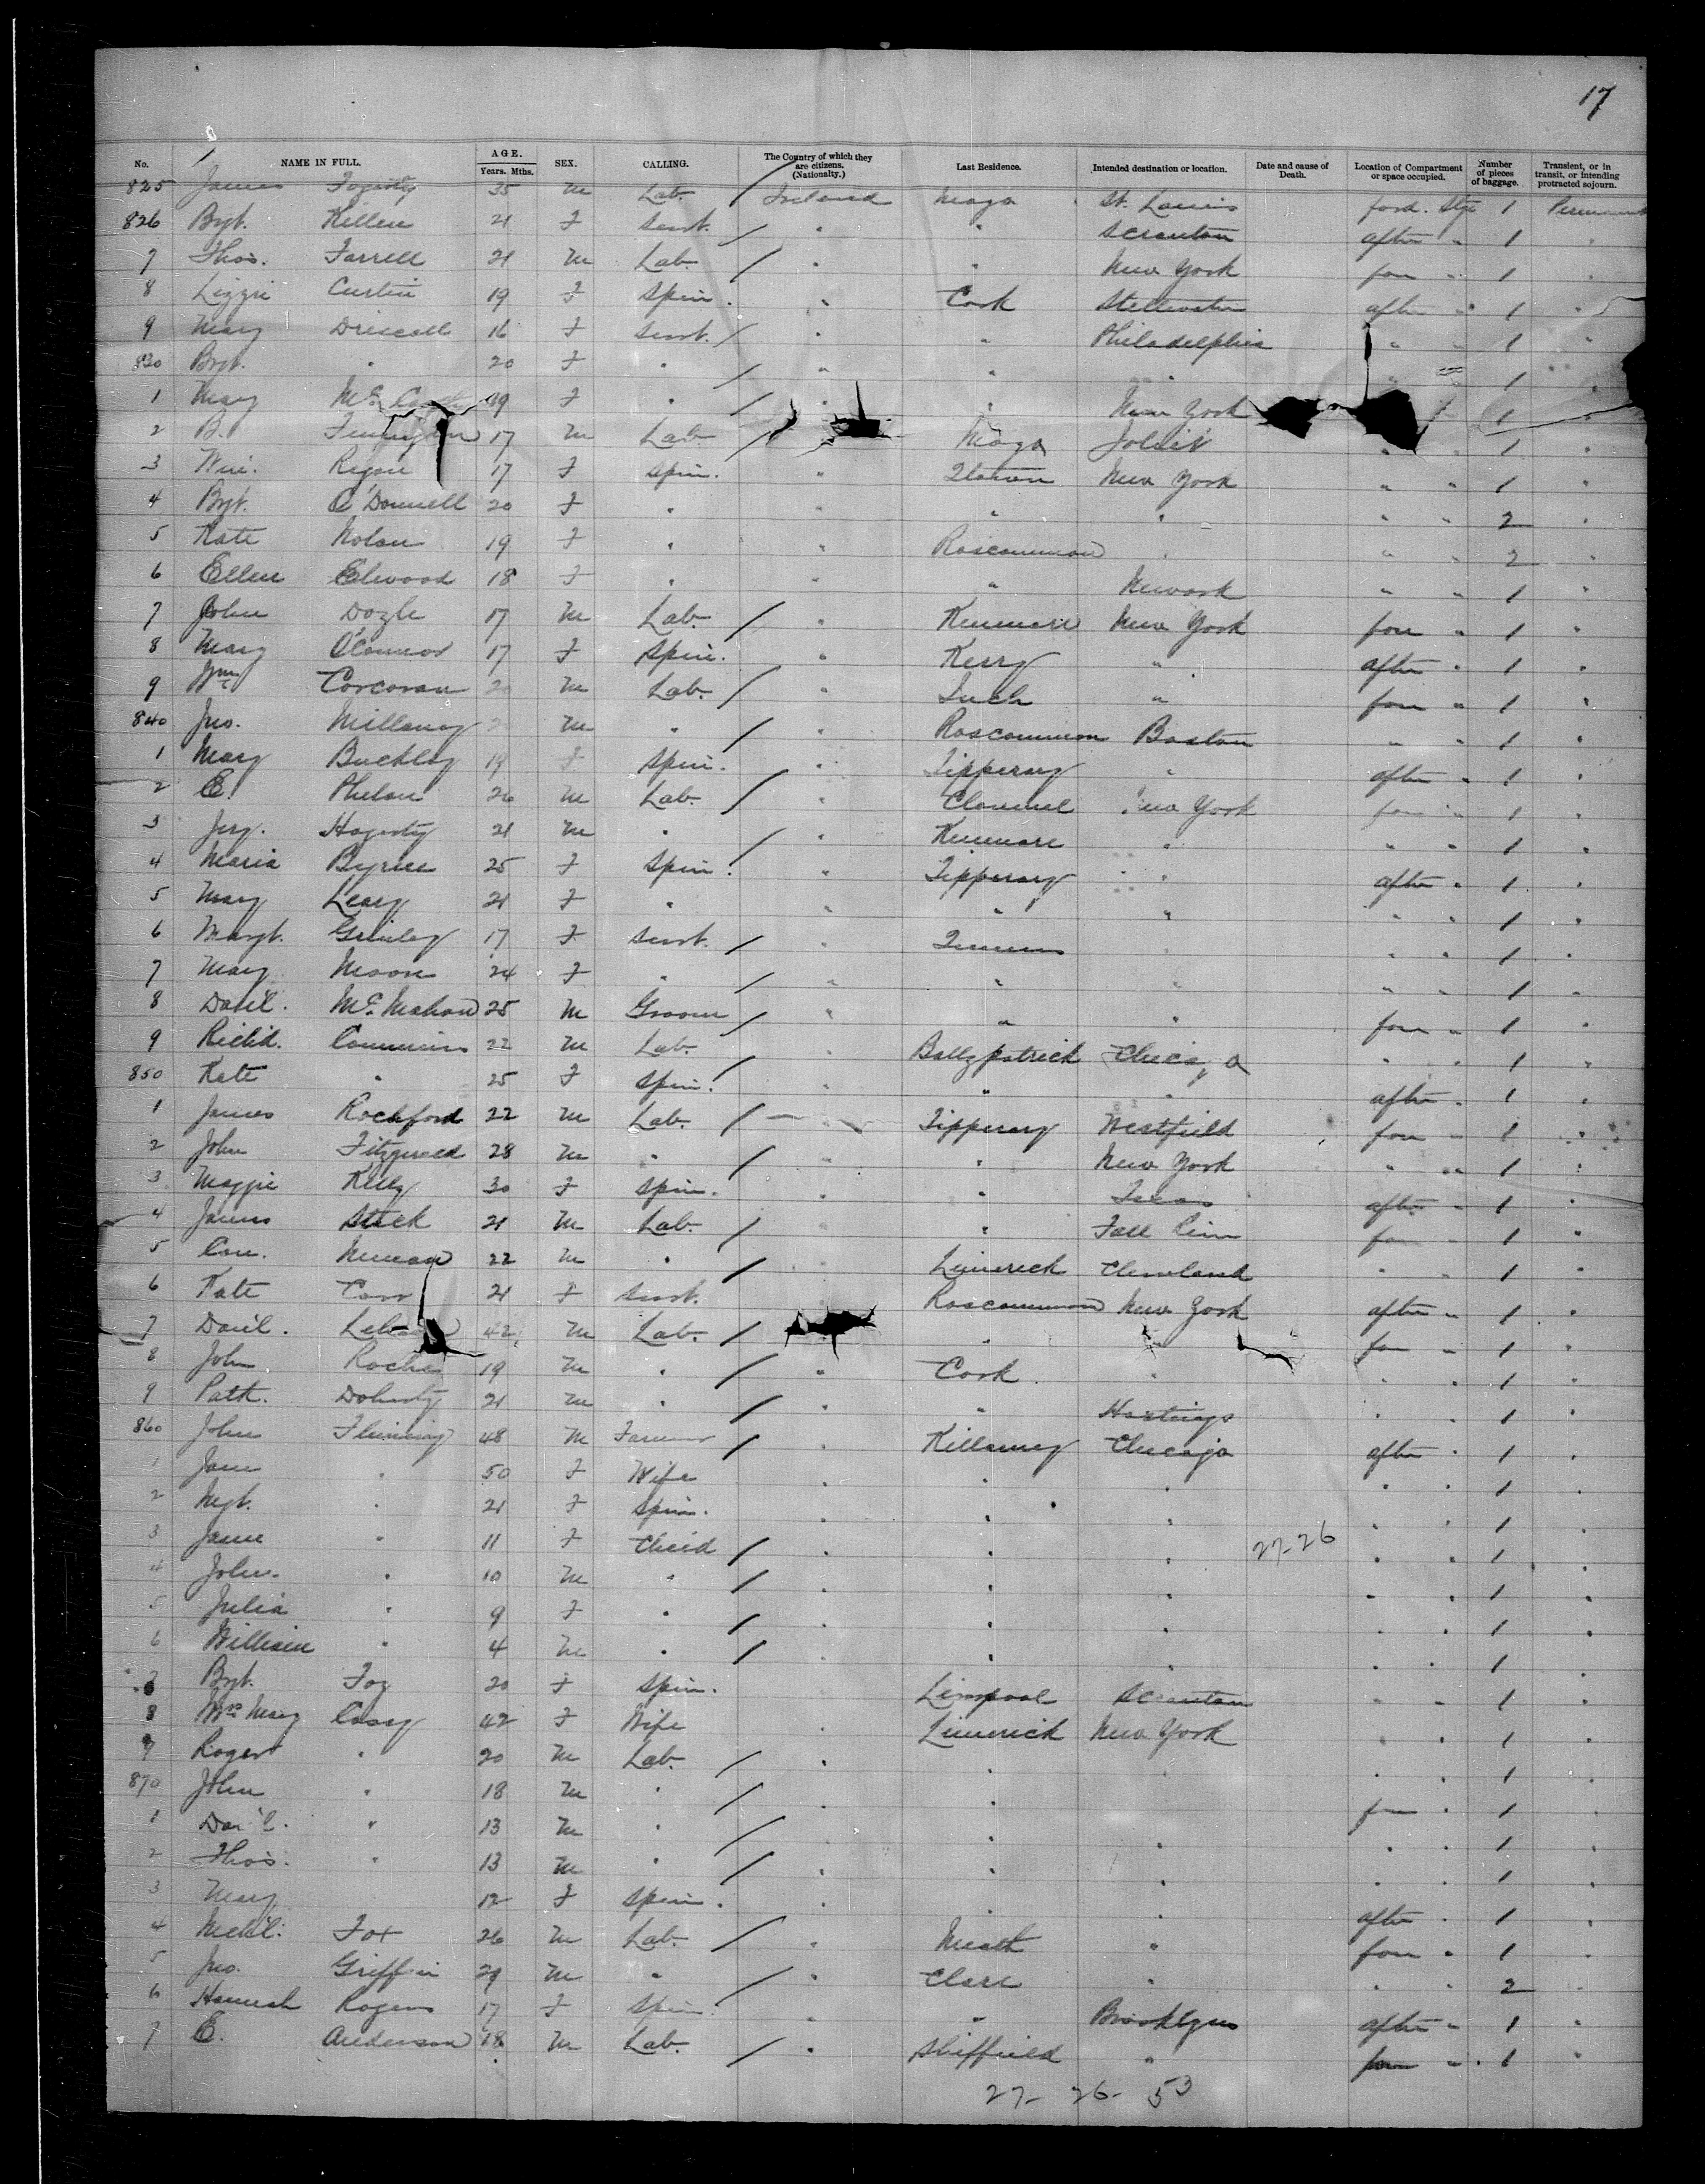 17
No. NAME IN FULL. AGE. Years. Mths. SEX. CALLING. The Country of which they are citizens. (Nationalty.) Last Residence. Intended destination or location. Date and cause of Death. Location of Compartment or space occupied. Number of pieces of baggage. Transient, or in transit, or intending protracted sojourn.
825 James Fogerty 35 M Lab. / Ireland Mayo St. Louis ford. Stge 1 Permanent
826 Bgt. Killen 21 F Servt. / " " Scranton after " 1 "
7 Thos. Farrell 21 M Lab. / " " New York for " 1 "
8 Lizzie Curtin 19 F Spin. " Cork Stillwater after " 1 "
9 Mary Driscoll 16 F Servt. / " " Philadelphia " " 1 "
830 Bgt. " 20 F " / " " " " 1 "
1 Mary 19 F " / " " New York 1 "
2 B. 17 M Lab / Mayo Joliet " " 1 "
3 Win. Regan 17 F Spin. " New York " " 1 "
4 Bgt. O'Donnell 20 F " " " " " " 2 "
5 Kate Nolan 19 F " " Roscommon " " " 2 "
6 Ellen Elwood 18 F " " " Newark " " 1 "
7 John Doyle 17 M Lab. / " Kenmare New York for " 1 "
8 Mary O'Connor 17 F Spin. " Kerry " after " 1 "
9 Wm Corcoran 20 M Lab. / " " for " 1 "
840 Jno. Millaney M " / " Roscommon Boston " " 1 "
1 Mary Buckley 19 F Spin. " Tipperary " after " 1 "
2 E. Phelan 26 M Lab. / " Clonmel New York for " 1 "
3 Jery. Hagerty 21 M " / " Kenmare " " " 1 "
4 Maria Byrne 25 F Spin. " Tipperary " after " 1 "
5 Mary Leary 21 F " " " " " " 1 "
6 Margt. 17 F Servt. / " " " 1 "
7 Mary Moore 24 F " / " " " " " 1 "
8 Dani'l. McMahon 25 M Groom / " " " for " 1 "
9 Richd. Commins 22 M Lab. " Ballypatrick Chicago " " 1 "
850 Kate " 25 F Spin. " " " after " 1 "
1 James Rochford 22 M Lab. / Tipperary Westfield for " 1 "
2 John Fitzgerald 28 M " / " " New York " " 1 "
3 Maggie Kelly 30 F Spin. " " Texas after " 1 "
4 James Stack 21 M Lab. / " Fall River for " 1 "
5 Con. 22 M " / " Limerick Cleveland " " 1 "
6 Kate Carr 21 F Servt. Roscommon New York after " 1 "
7 Dani'l. 42 M Lab. / " " for " 1 "
8 John Roche 19 M " / " Cork " " " 1 "
9 Patk. Doherty 21 M " / " " Hastings " " 1 "
860 John Flinning 48 M Farmer / " Killarney Chicago after " 1 "
1 Jane " 50 F Wife " " " " " 1 "
2 Mgt. " 21 F Spin. " " " " " 1 "
3 Jane " 11 F Child / " " " 27-26 " " 1 "
4 John. " 10 M " / " " " " " 1 "
5 Julia " 9 F " / " " " " " 1 "
6 William " 4 M " / " " " " " 1 "
7 Bgt. Foy 20 F Spin. Liverpool Scranton " " 1 "
8 Mrs Mary Casey 42 F Wife " Limerick New York " " 1 "
9 Roger " 20 M Lab. / " " " " 1 "
870 John " 18 M " / " " for " 1 "
1 Dani'l. " 13 M " / " " " " " 1 "
2 Thos. " 13 M " / " " " " " 1 "
3 Mary 12 F Spin. " " " after " 1 "
4 Mich'l. Fox 26 M Lab. / " Meath " for " 1 "
5 Jno. Griffin 29 M " / " Clare " " " 2 "
6 Hannah Rogers 17 F Spin. " " Brooklyn after " 1 "
7 E. Anderson 18 M Lab. / " Sheffield " for " 1 "
27- 26- 53